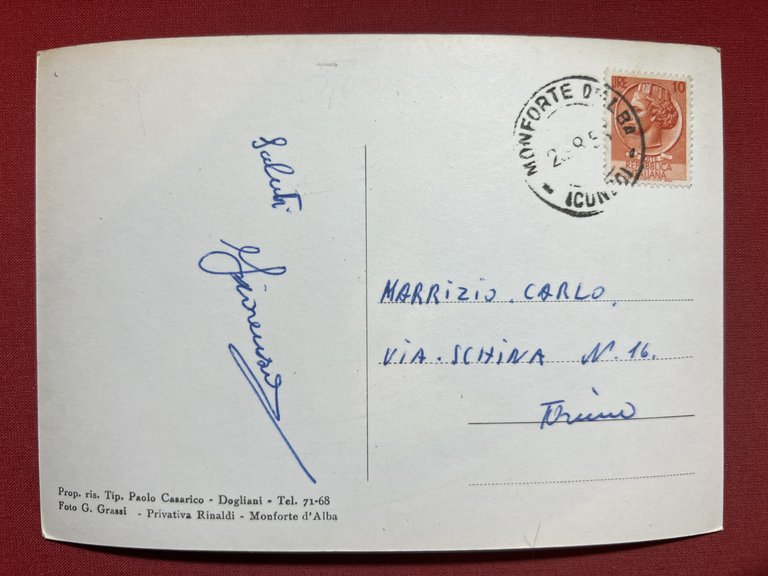 Saluti
MARRIZIO. CARLO.
VIA. SCHINA N. 16.
Torino
MONFORTE D'ALBA
(CUNEO)
LIRE 10
REPUBBLICA
ITALIANA
Prop. ris. Tip. Paolo Casarico - Dogliani - Tel. 71-68
Foto G. Grassi - Privativa Rinaldi - Monforte d'Alba